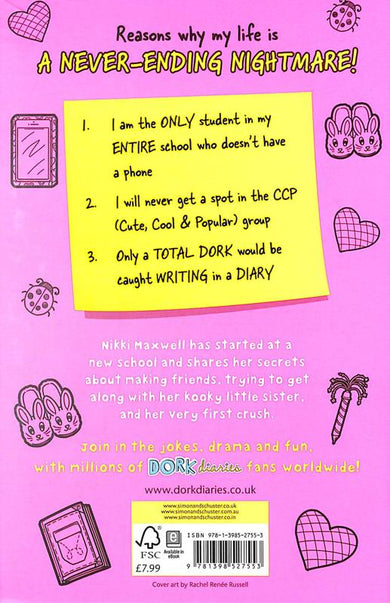 Reasons why my life is
A NEVER-ENDING NIGHTMARE!
1. I am the ONLY student in my
ENTIRE school who doesn't have
a phone
2. I will never get a spot in the CCP
(Cute, Cool & Popular) group
3. Only a TOTAL DORK would be
caught WRITING in a DIARY
Nikki Maxwell has started at a
new school and shares her secrets
about making friends, trying to get
along with her kooky little sister,
and her very first crush.
Join in the jokes, drama and fun,
with millions of DORK diaries fans worldwide!
www.dorkdiaries.co.uk
www.simonandschuster.co.uk
www.simonandschuster.com.au
www.simonandschuster.co.in
FSC
Available in eBook
ISBN 978-1-3985-2755-3
9 781398 527553
£7.99
Cover art by Rachel Renée Russell